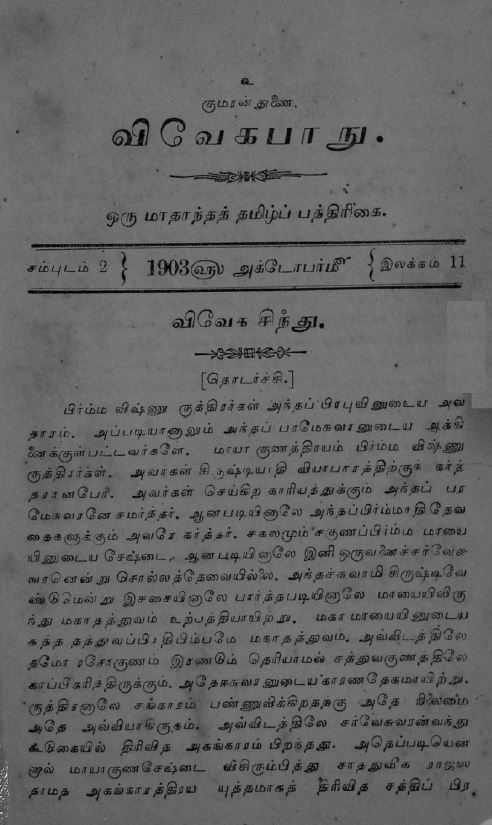 உ
குமரன் துணை.
விவேகபாநு.
ஒரு மாதாந்தத் தமிழ்ப் பத்திரிகை.
சம்புடம் 2 } 1903௵ அக்டோபர்௴ { இலக்கம் 11
விவேக சிந்து.
[தொடர்ச்சி.]
பிர்ம்ம விஷ்ணு ருக்திரர்கள் அந்தப் பிரபுவினுடைய அவ
தாரம். அப்படியானாலும் அந்தப் பரமேசுவரனுடைய ஆக்கி
னைக்குள்பட்டவர்களே. மாயா குணத்திரயம் பிர்ம்ம விஷ்ணு
ருத்திரர்கள். அவர்கள் சிருஷ்டியாதி வியாபாரத்திற்குக் கர்த்
தரானபேர். அவர்கள் செய்கிற காரியத்துக்கும் அந்தப் பர
மேசுவரனே சமர்த்தர். ஆனபடியினாலே அந்தப்பிர்ம்மாதிதேவ
தைகளுக்கும் அவரே கர்த்தர். சகலமும் சகுணப்பிர்ம்ம மாயை
யினுடைய சேஷ்டை. ஆனபடியினாலே இனி ஒருவனைச்சர்வேசு
வரனென்று சொல்லத்தேவையில்லை. அந்தச்சுவாமி சிருஷ்டிவே
ண்டுமென்று இச்சையினாலே பார்த்தபடியினாலே மாயையிலிரு
ந்து மகாதத்துவம் உற்பத்தியாயிற்று. மகா மாயையினுடைய
சுத்த தத்துவப்பிரதிபிம்பமே மகாதத்துவம். அவ்விடத்திலே
தமோ ரசோகுணம் இரண்டும் தெரியாமல் சத்துவகுணத்திலே
காப்பிகரித்திருக்கும். அதேஈசுவரனுடைய காரணதேகமாயிற்று.
ருத்திரனாலே சங்காரம் பண்ணுவிக்கிறதற்கு அதே நிலைமை
அதே அவ்வியாகிருதம். அவ்விடத்திலே சர்வேசுவரன்வந்து
கூடுகையில் திரிவித அகங்காரம் பிறந்தது. அதெப்படியென
றால் மாயாகுணசேஷ்டை விசிரும்பித்து சாத்துவீக ராஜஸ
தாமத அகங்காரத்திரய யுத்தமாகத் திரிவித சத்திப் பிர